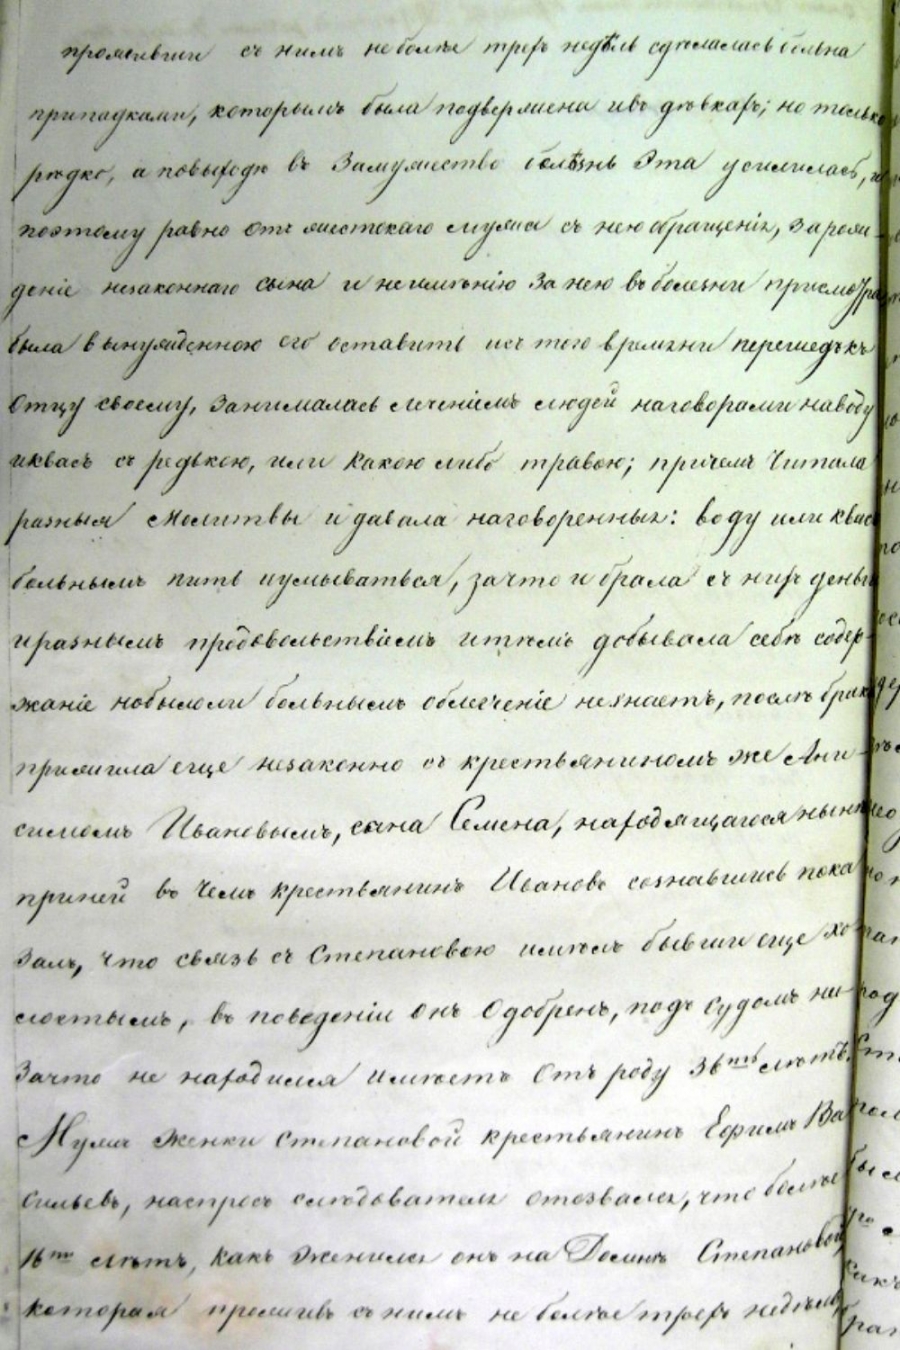 проживши съ нимъ не болѣе трехъ недѣль сдѣлалась больна
припадками, которымъ была подвержена и въ дѣвкахъ; но только
рѣдко, а по выходѣ въ замужество болѣзнь эта усилилась, и
поэтому равно отъ жестокаго мужа съ нею обращенія, за рож-
деніе незаконнаго сына и не имѣнію за нею въ болезни присмотра
была вынужденною его оставить и съ того времени перешедъ къ
отцу своему, занималась леченіемъ людей наговорами на воду
и квасъ съ редькою, или какою либо травою; причемъ читала
разныя молитвы и давала наговоренныя: воду или квасъ
больнымъ пить и умываться, за что и брала съ нихъ деньги
и разнымъ продовольствіемъ и тѣмъ добывала себѣ содер-
жаніе но было ли больнымъ облегченіе не знаетъ, послѣ брака
прижила еще незаконно съ крестьяниномъ же Ани-
симомъ Ивановымъ, сына Семена, находящагося нынѣ
при ней въ чемъ крестьянинъ Ивановъ сознавшись пока
залъ, что связь съ Степановою имѣлъ бывши еще хо-
лостымъ, въ поведеніи онъ одобренъ, подъ судомъ ни
за что не находился имѣетъ отъ роду 36ть лѣтъ.
Мужъ женки Степановой крестьянинъ Ефимъ Ва
сильевъ, на спросъ слѣдователя отозвался, что болѣе
16ти лѣтъ, какъ женился онъ на Степановой,
которая проживъ съ нимъ не болѣе трехъ недѣль,